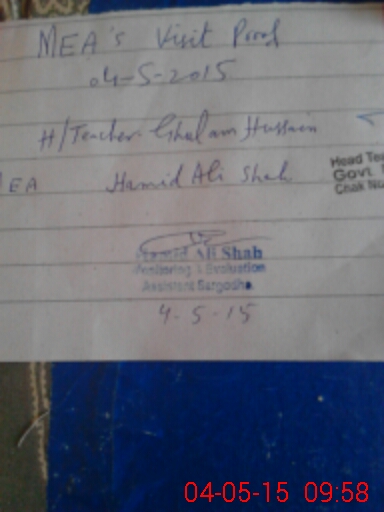 MEA's Visit Proof
04-5-2015
H/Teacher Ghulam Hussain
MEA Hamid Ali Shah
Head Tea
Govt.
Chak No
Hamid Ali Shah
Monitoring & Evaluation
Assistant Sargodha.
4-5-15
04-05-15 09:58